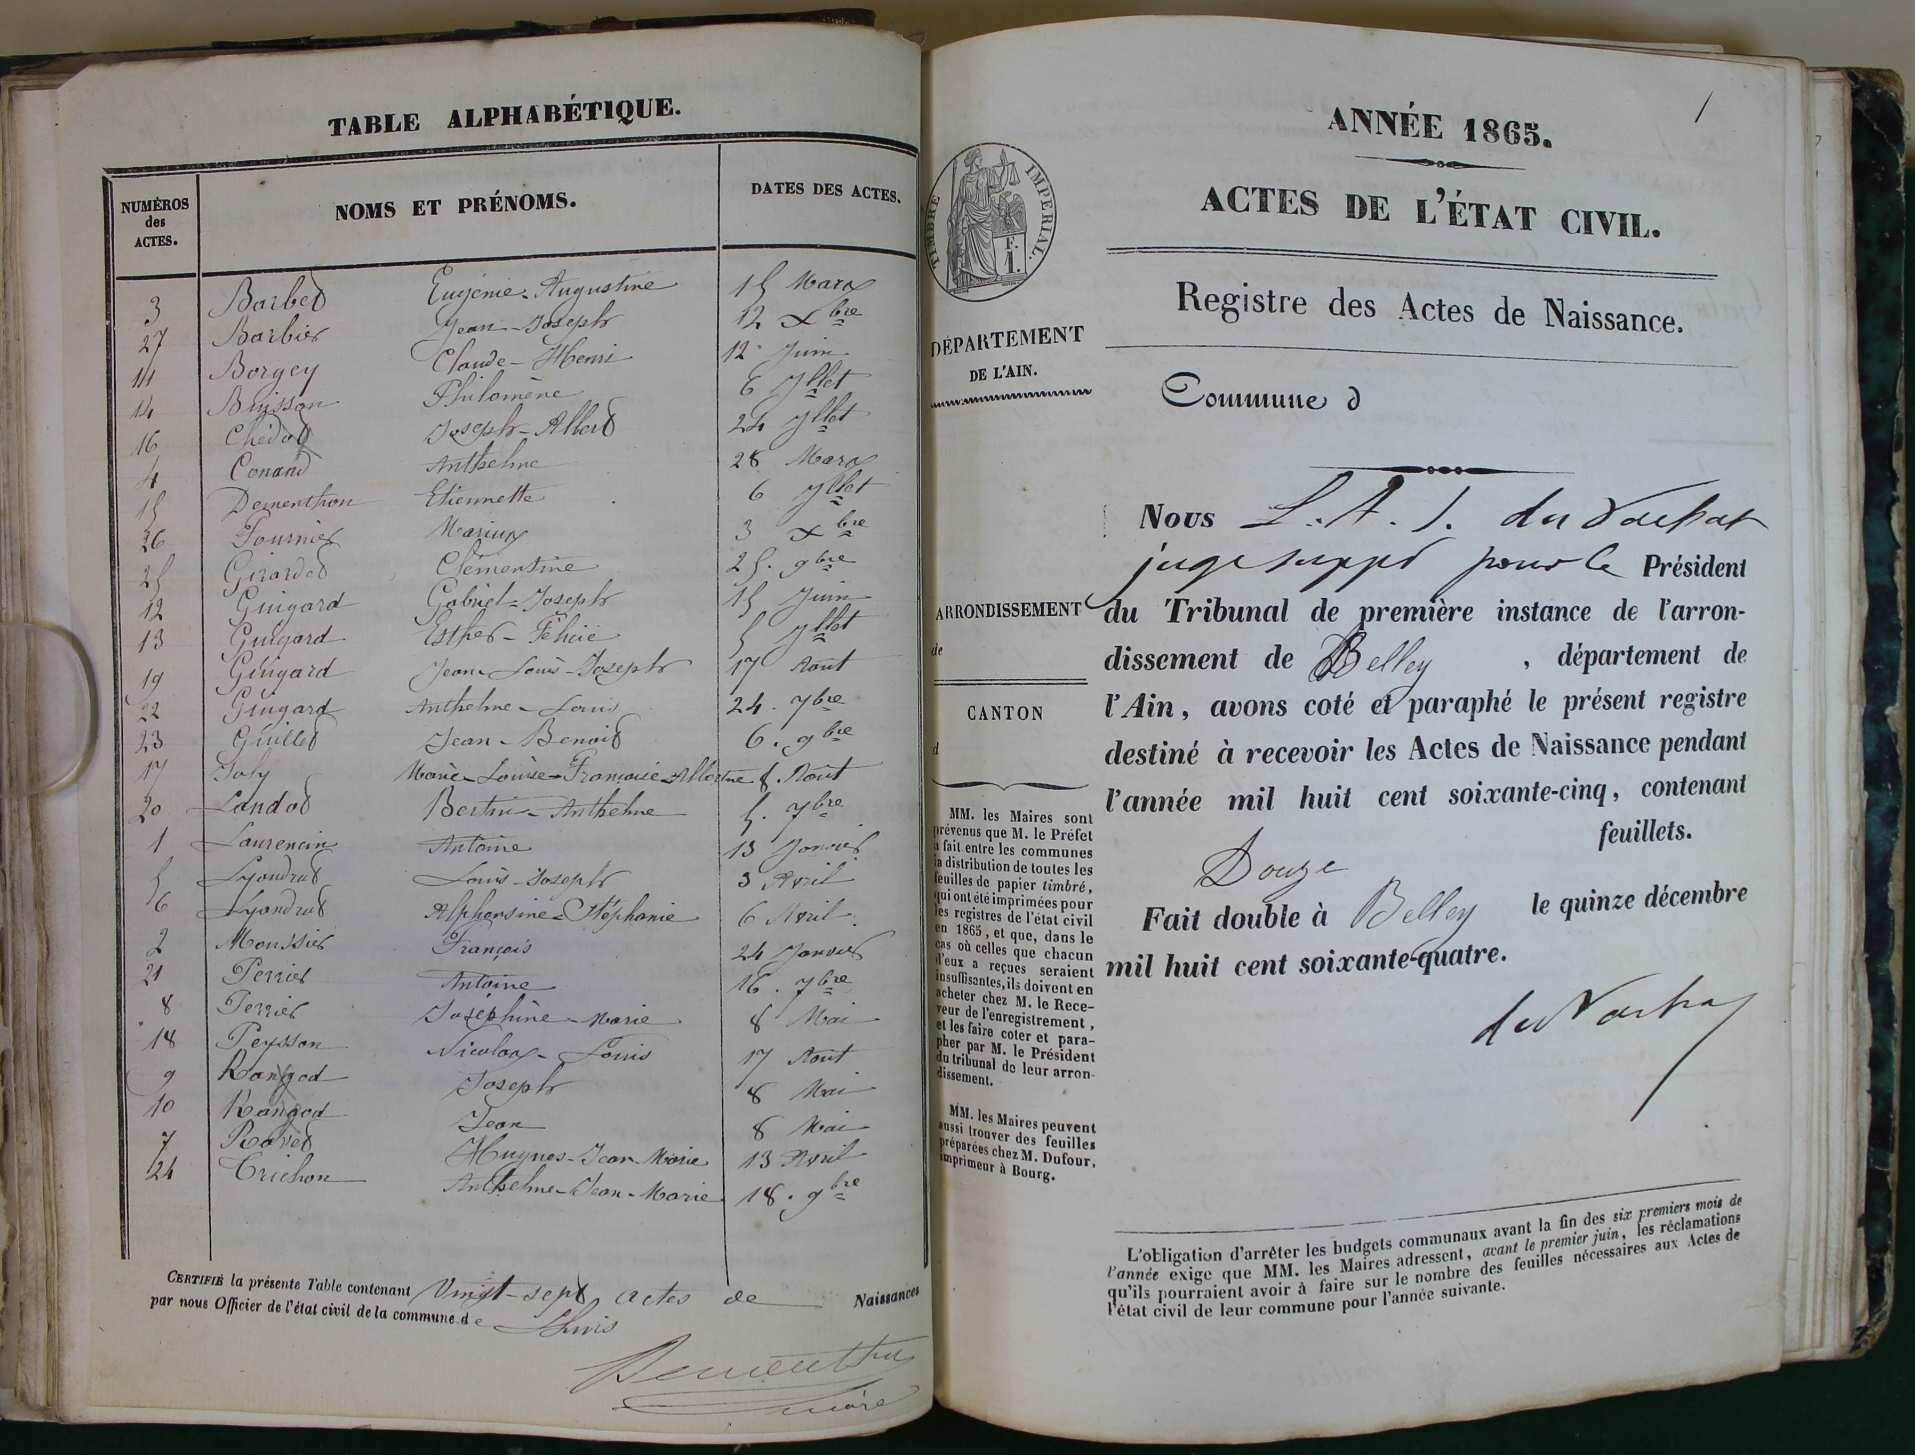 TABLE ALPHABÉTIQUE.
NUMÉROS des ACTES. NOMS ET PRÉNOMS. DATES DES ACTES.
3 Barbet Eugénie-Augustine 15 Mars
27 Barbier Jean-Joseph 12 Xbre
11 Borgey Claude-Henri 12 Juin
14 Buisson Philomène 6 Jllet
16 Chédot Joseph-Albert 24 Jllet
4 Conand Anthelme 28 Mars
15 Dementhon Etiennette 6 Jllet
26 Fournier Marius 3 Xbre
25 Girardot Clémentine 25. 9bre
12 Guigard Gabriel-Joseph 15 Juin
13 Guigard Esther-Félicie 5 Jllet
19 Guigard Jean-Louis-Joseph 17 Août
22 Guigard Anthelme-Louis 24. 7bre
23 Guillot Jean-Benoit 6. 9bre
17 Joly Marie-Louise-Françoise-Albertine 8 Août
20 Landot Bertin-Anthelme 5. 7bre
1 Laurencin Antoine 13 Janvier
5 Lyondrat Louis-Joseph 3 Avril
6 Lyondrat Alphonsine-Stéphanie 6 Avril.
2 Moussier François 24 Janvier
21 Perrier Antoine 16. 7bre
8 Perrier Joséphine-Marie 8 Mai
18 Peysson Nicolas-Louis 17 Août
9 Rangod Joseph 8 Mai
10 Rangod Jean 8 Mai
7 Ravet Hugues-Jean-Marie 13 Avril
24 Trichon Anthelme-Jean-Marie 18. 9bre
CERTIFIÉ la présente Table contenant Vingt-sept actes de Naissances
par nous Officier de l'état civil de la commune de Lhuis
Dementhon
Maire
1
ANNÉE 1865.
ACTES DE L'ÉTAT CIVIL.
Registre des Actes de Naissance.
TIMBRE IMPÉRIAL.
F.
1.
DÉPARTEMENT
DE L'AIN.
Commune d
ARRONDISSEMENT
de
CANTON
d
MM. les Maires sont
prévenus que M. le Préfet
a fait entre les communes
la distribution de toutes les
feuilles de papier timbré,
qui ont été imprimées pour
les registres de l'état civil
en 1865, et que, dans le
cas où celles que chacun
d'eux a reçues seraient
insuffisantes, ils doivent en
acheter chez M. le Rece-
veur de l'enregistrement,
et les faire coter et para-
pher par M. le Président
du tribunal de leur arron-
dissement.
MM. les Maires peuvent
aussi trouver des feuilles
préparées chez M. Dufour,
imprimeur à Bourg.
Nous L. A. J. du Vachat
juge suppt pour le Président
du Tribunal de première instance de l'arron-
dissement de Belley, département de
l'Ain, avons coté et paraphé le présent registre
destiné à recevoir les Actes de Naissance pendant
l'année mil huit cent soixante-cinq, contenant
Douze feuillets.
Fait double à Belley le quinze décembre
mil huit cent soixante-quatre.
du Vachat
L'obligation d'arrêter les budgets communaux avant la fin des six premiers mois de
l'année exige que MM. les Maires adressent, avant le premier juin, les réclamations
qu'ils pourraient avoir à faire sur le nombre des feuilles nécessaires aux Actes de
l'état civil de leur commune pour l'année suivante.